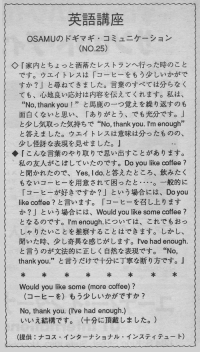 英語講座
OSAMUのドギマギ・コミュニケーション
(NO.25)
◇『家内とちょっと洒落たレストランへ行った時のこと
です。ウエイトレスは「コーヒーをもう少しいかがで
すか?」と尋ねてきました。言葉のすべては分らなく
ても、心地良い応対は内容を伝えてくれます。私は、
"No, thank you!"と馬鹿の一つ覚えを繰り返すのも
面白くないと思い、「ありがとう、でも充分です。」
と少し気取った気持ちで"No, thank you. I'm enough"
と答えました。ウエイトレスは意味が分ったものの、
少し怪訝な表現を見せました。』
◆『こんな言葉のやり取りで思い出すことがあります。
私の友人がこぼしていたのです。Do you like coffee?
と聞かれたので、Yes, I do.と答えたところ、飲みたく
もないコーヒーを用意されて困ったと…。一般的に
「コーヒーが好きですか?」という場合には、Do you
like coffee?と言います。「コーヒーを召し上ります
か?」という場合には、Would you like some coffee?
となるのです。I'm enough.については、これでもおっ
しゃりたいことを推察することはできます。しかし、
聞いた時、少し奇異な感じがします。I've had enough.
と言うのが文法的に正しく自然な表現です。"No,
thank you."と言うだけで十分に丁寧な断り方です。』
* * * * * * *
Would you like some (more coffee)?
(コーヒーを)もう少しいかがですか?
No, thank you. (I've had enough.)
いいえ結構です。(十分に頂戴しました。)
(提供:ナコス・インターナショナル・インスティテュート)